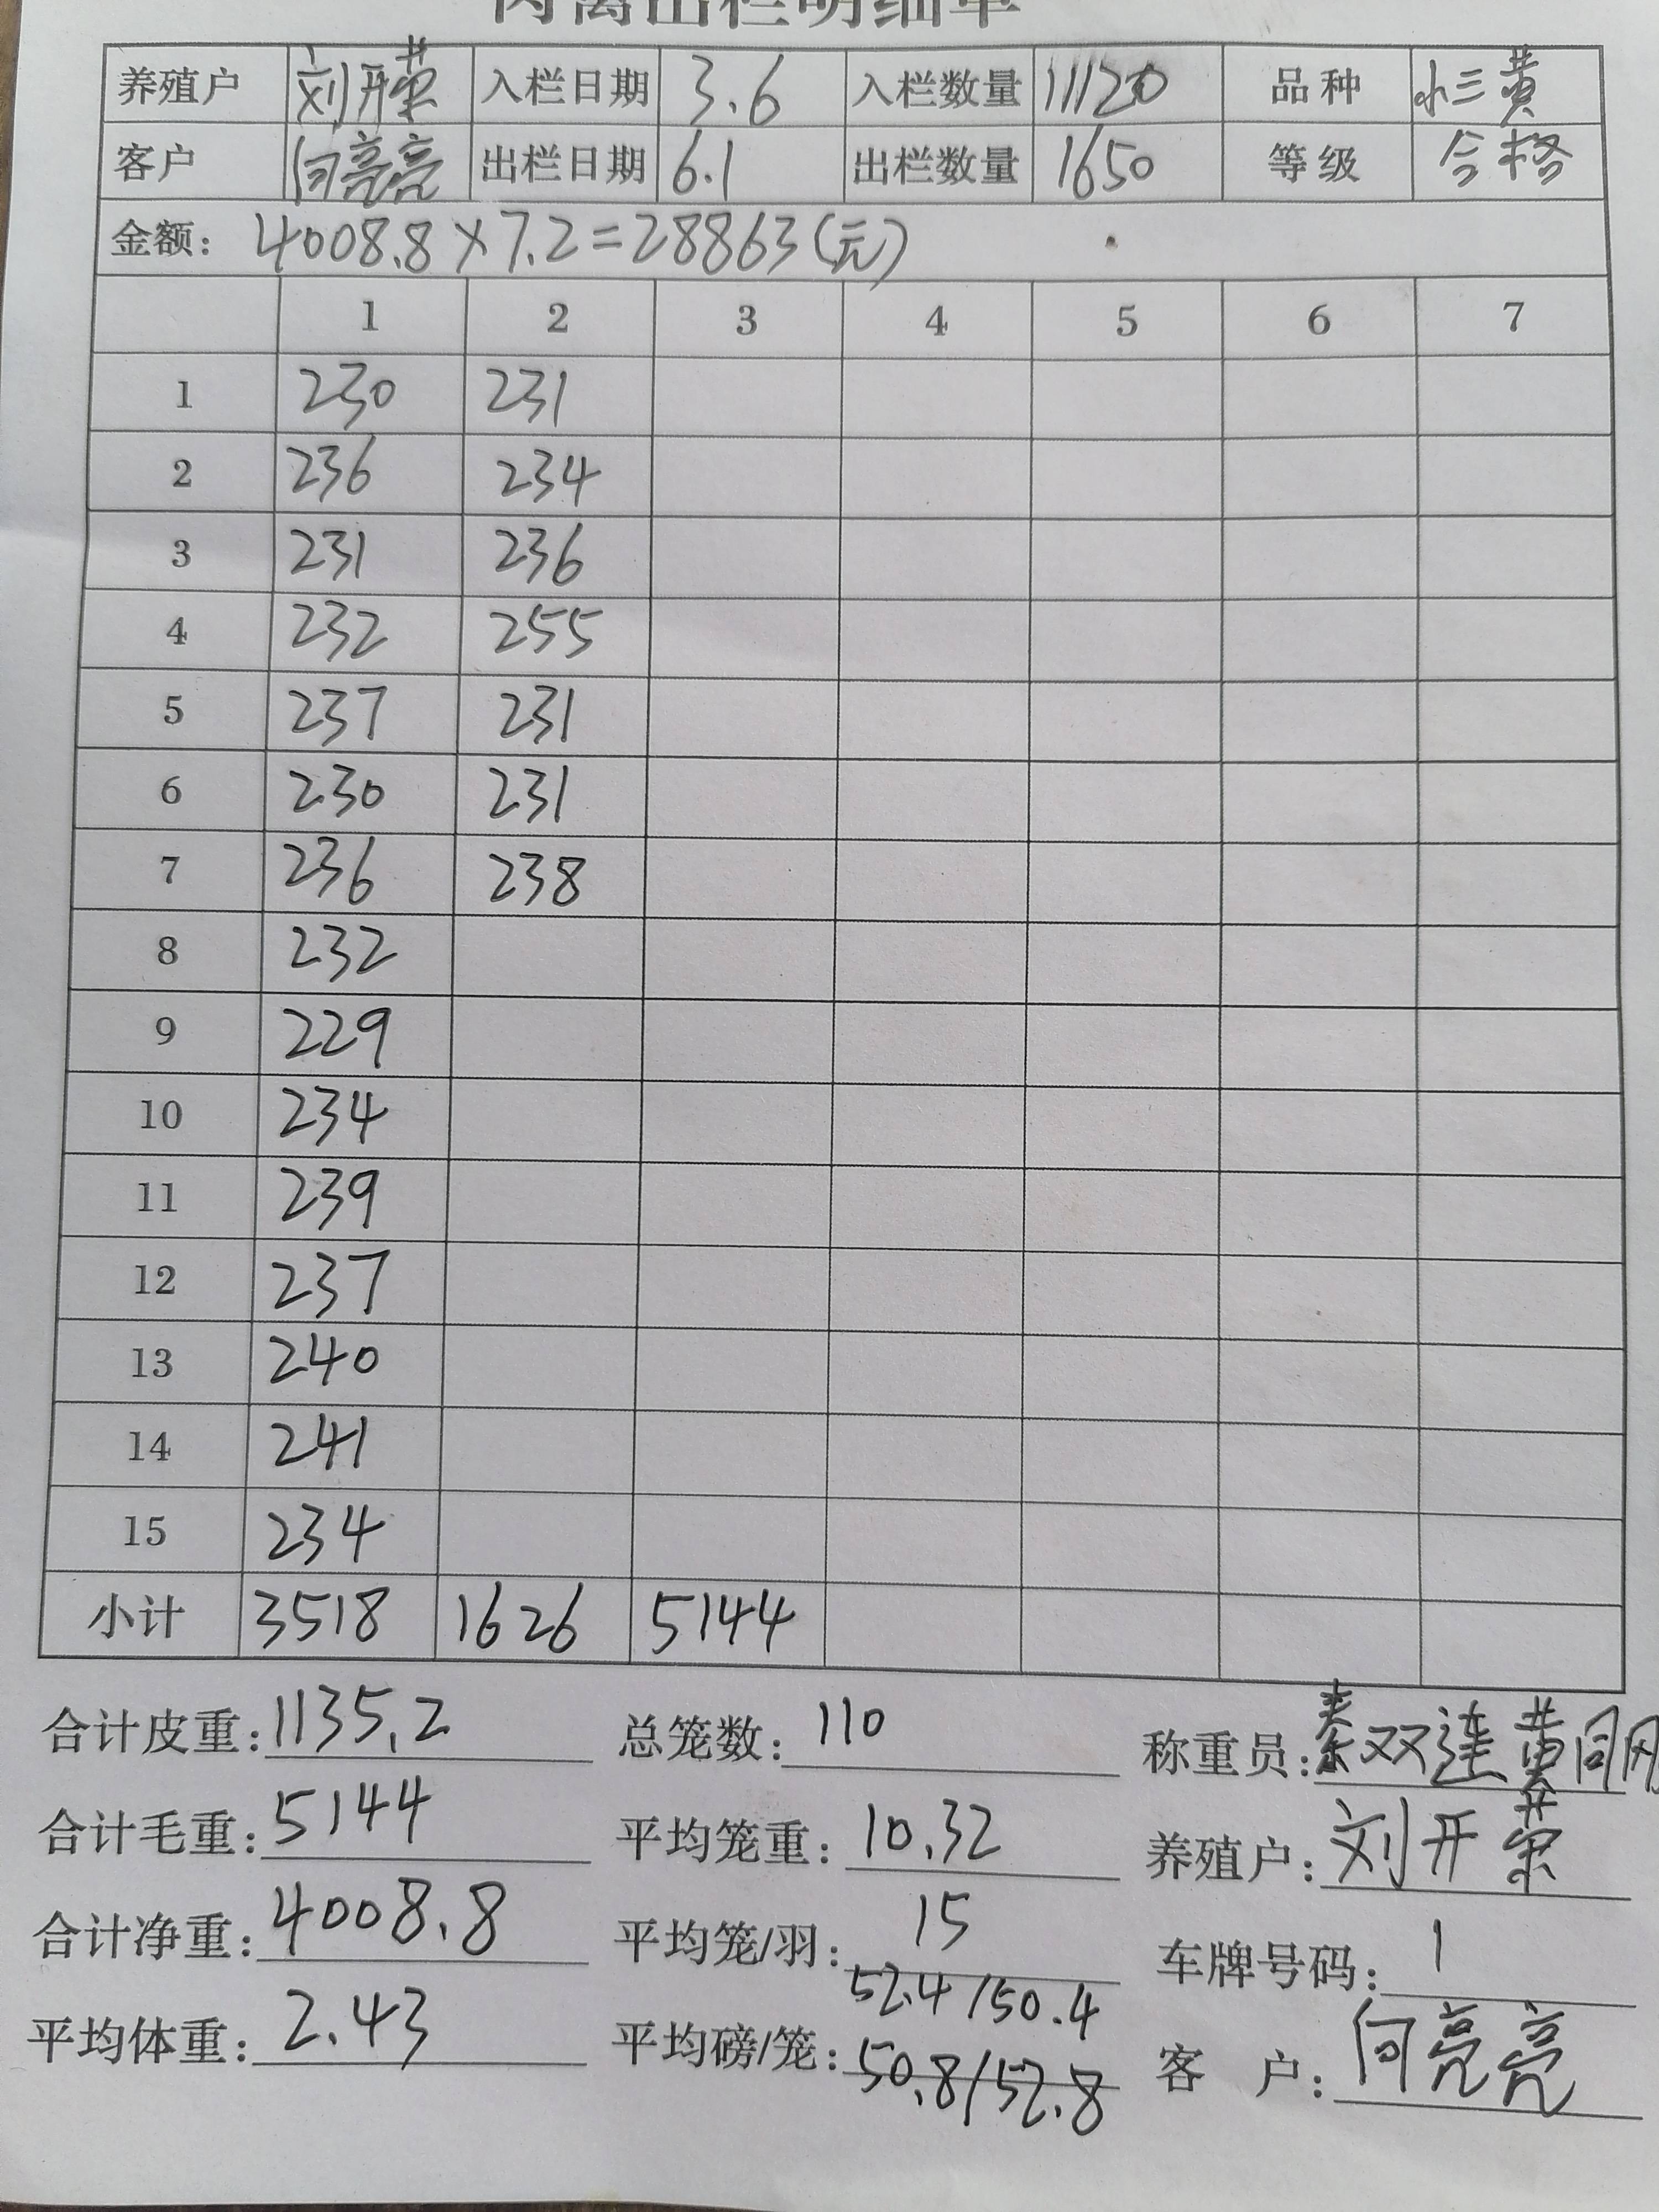 肉禽出栏明细单
养殖户 刘开荣 入栏日期 3.6 入栏数量 11120 品种 小三黄
客户 何亮亮 出栏日期 6.1 出栏数量 1650 等级 合格
金额: 4008.8×7.2=28863(元)
1 2 3 4 5 6 7
1 230 231
2 236 234
3 231 236
4 232 255
5 237 231
6 230 231
7 236 238
8 232
9 229
10 234
11 239
12 237
13 240
14 241
15 234
小计 3518 1626 5144
合计皮重: 1135.2 总笼数: 110 称重员: 秦双连 黄同刚
合计毛重: 5144 平均笼重: 10.32 养殖户: 刘开荣
合计净重: 4008.8 平均笼/羽: 15 车牌号码: 1
52.4/50.4
平均体重: 2.43 平均磅/笼: 50.8/52.8 客户: 何亮亮